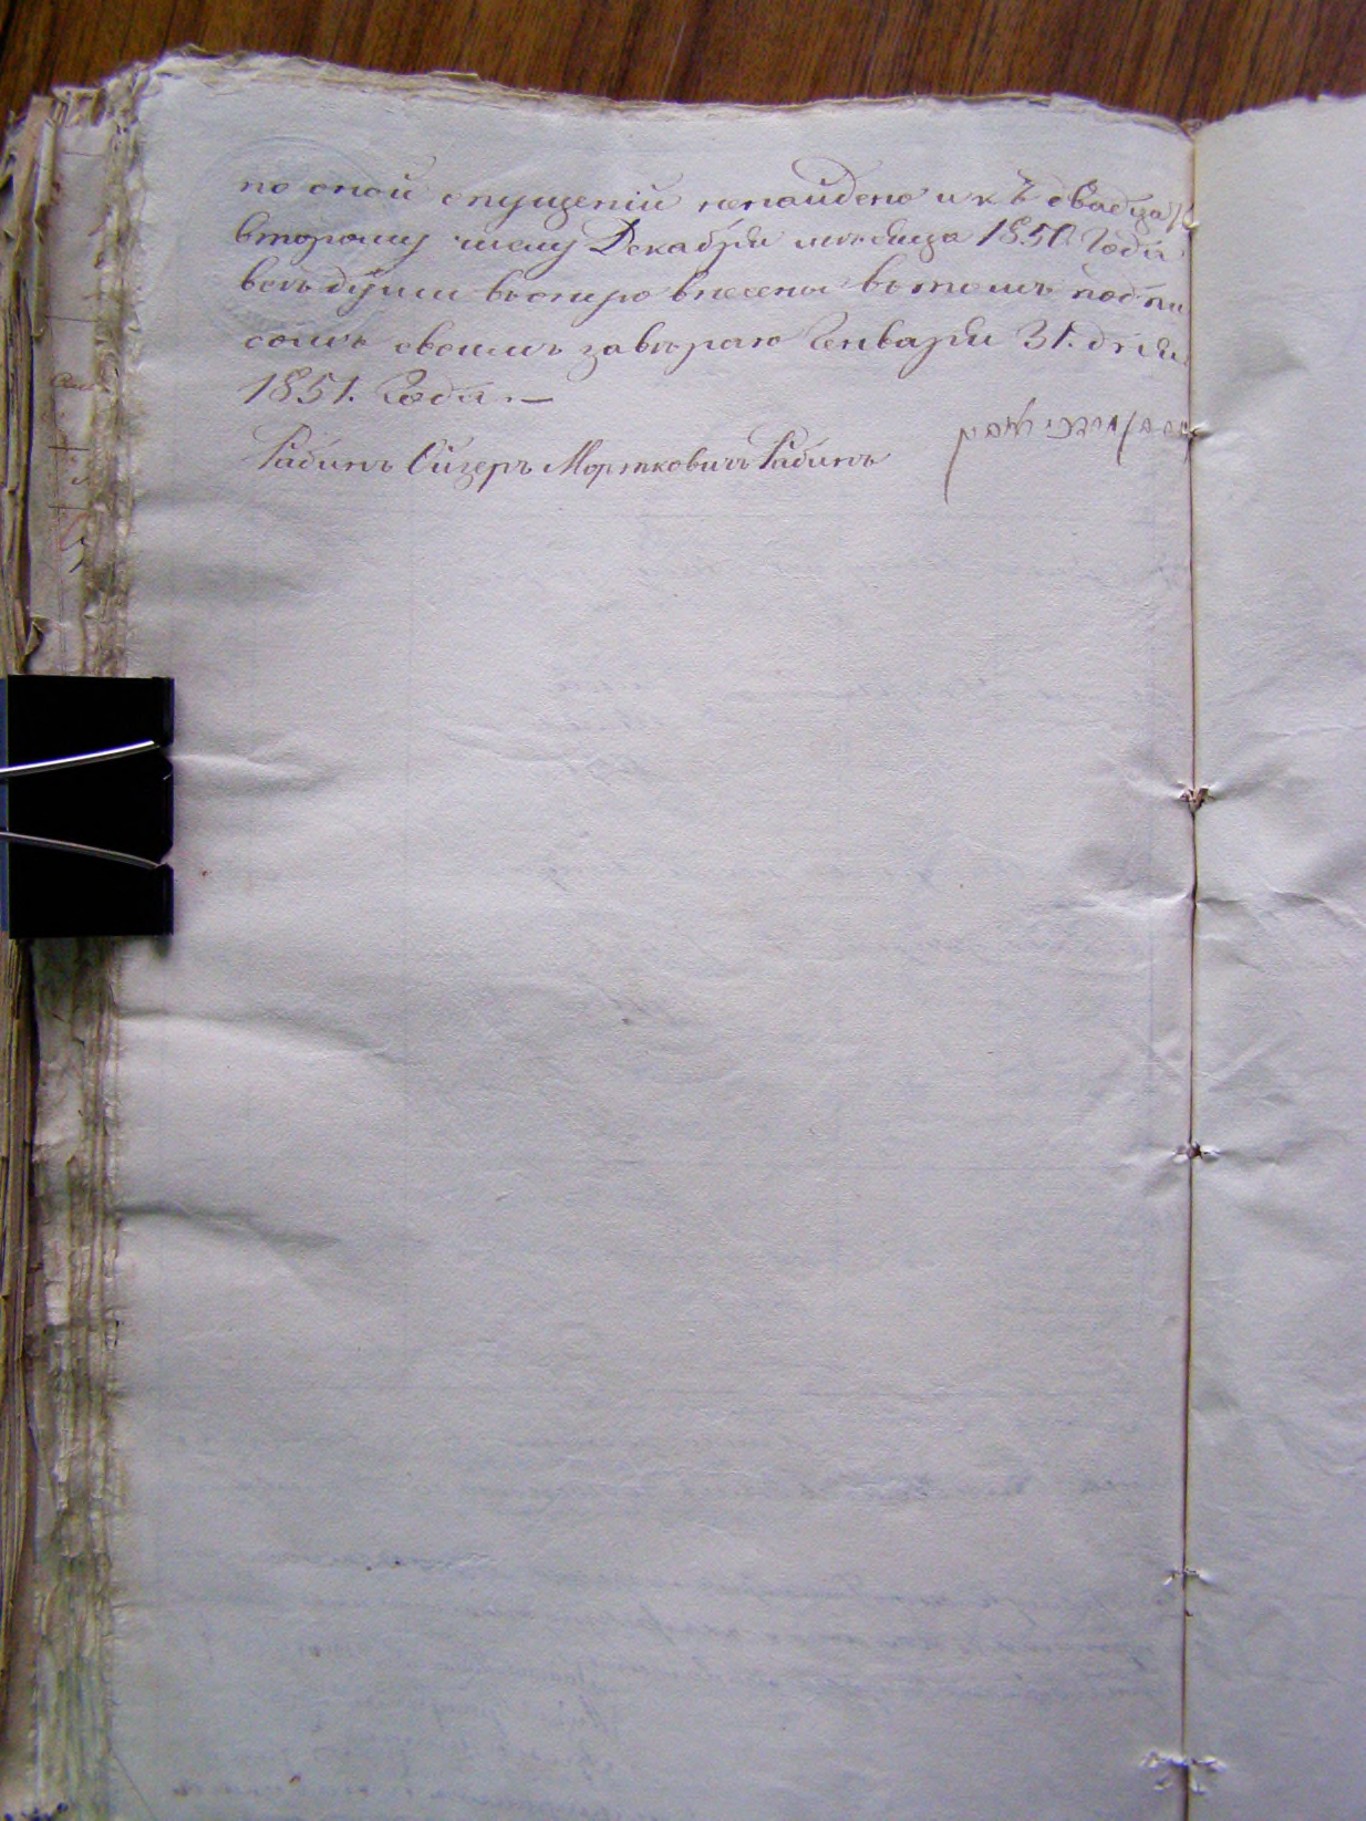 по оной опущеній ненайдено и къ двадца
второму числу Декабря мѣсяца 1850 Года
всѣ души въ оную внесены въ томъ подпи
сомъ своимъ завѣраю Генваря 31. дня
1851. Года. —
Рабинъ Ойзеръ Мортковичъ Рабинъ